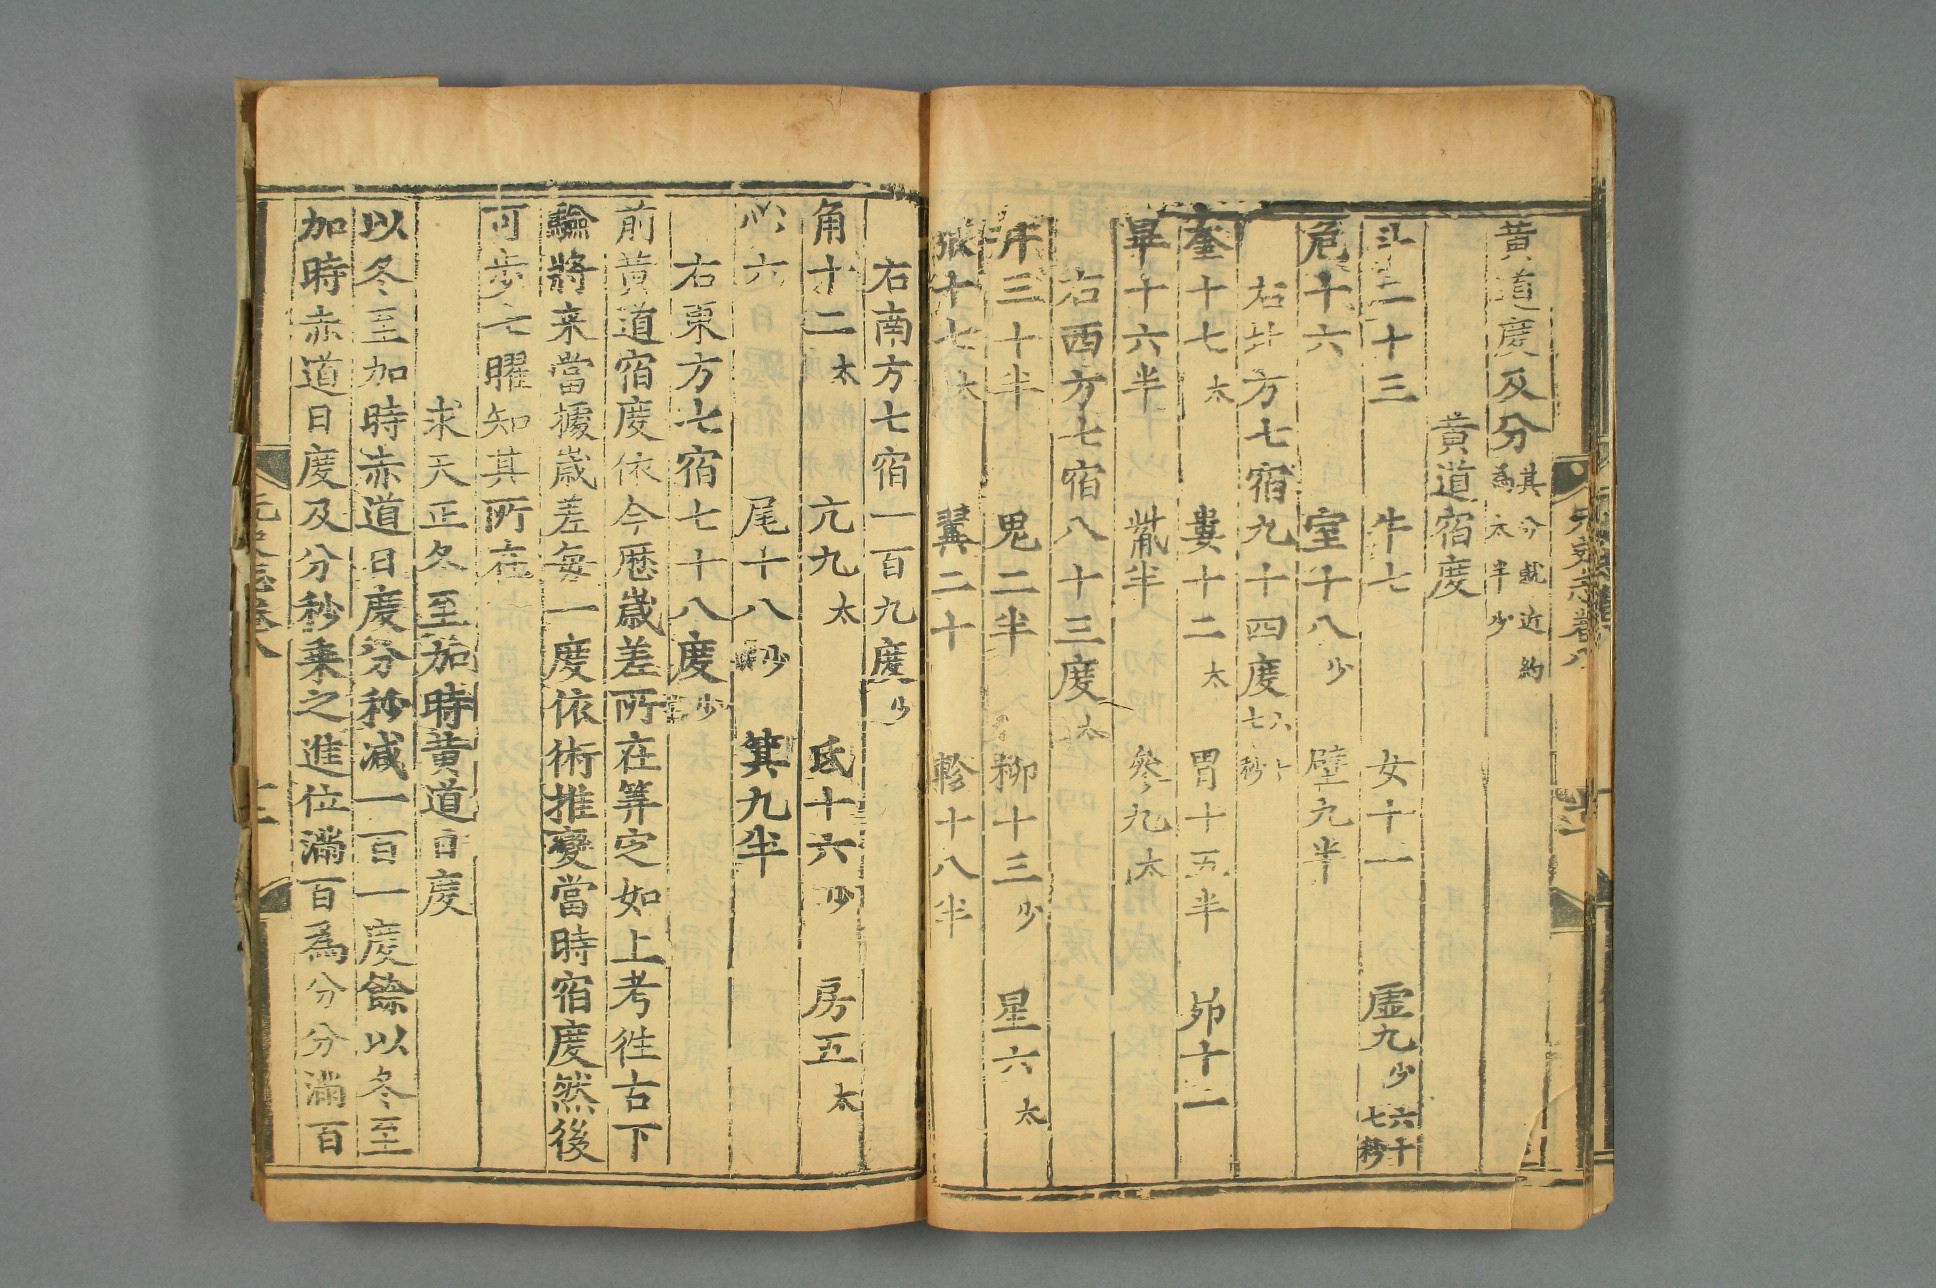 黄道度及分其分就近約爲太半少
黄道宿度
斗二十三 牛七 女十一 虛九少六十七秒
危十六 室十八少 壁九半
右北方七宿九十四度六十七秒
奎十七太 婁十二太 胃十五半 昴十一
畢十六半 觜半 參九太
右西方七宿八十三度太
井三十半 鬼二半 柳十三少 星六太
張十七太 翼二十 軫十八半
右南方七宿一百九度少
角十二太 亢九太 氐十六少 房五太
心六 尾十八少 箕九半
右東方七宿七十八度少
前黄道宿度依今厯歲差所在筭定如上考徃古下
驗將来當據歲差每一度依術推變當時宿度然後
可步七曜知其所在
求天正冬至加時黄道日度
以冬至加時赤道日度分秒减一百一度餘以冬至
加時赤道日度及分秒乗之進位滿百爲分分滿百
元史志卷八